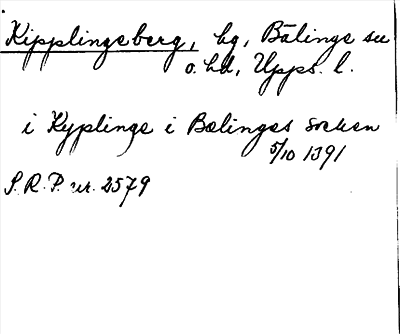 Kipplingeberg, bg, Bälinge sn
o. hd, Upps. l.
i Kyplinge i Bælinges soken
5/10 1391
S.R.P. nr. 2579